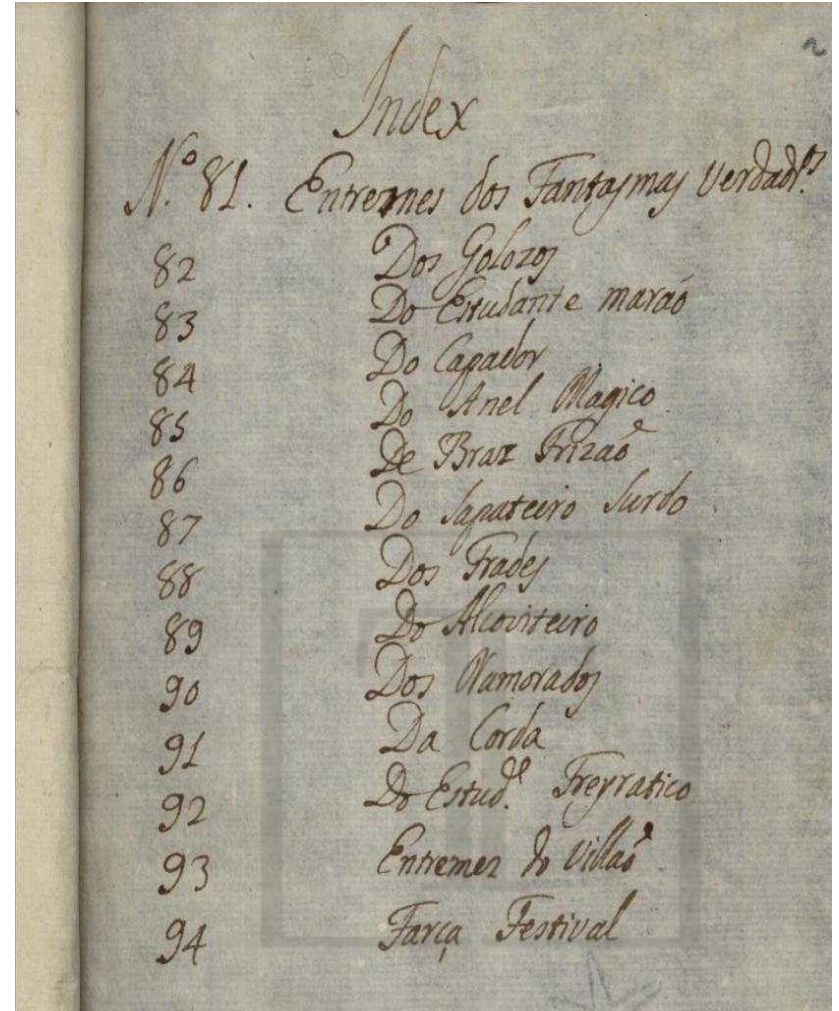 2
Index
N.º 81. Entremes dos Fantasmas verdadr.os
82 Dos Golozos
83 Do Estudante maráo
84 Do Capador
85 Do Anel Magico
86 De Braz Frizaõ
87 Do Sapateiro Surdo
88 Dos Frades
89 Do Alcoviteiro
90 Dos Namorados
91 Da Corda
92 Do Estud.e Freyratico
93 Entremez do Villaõ
94 Farça Festival